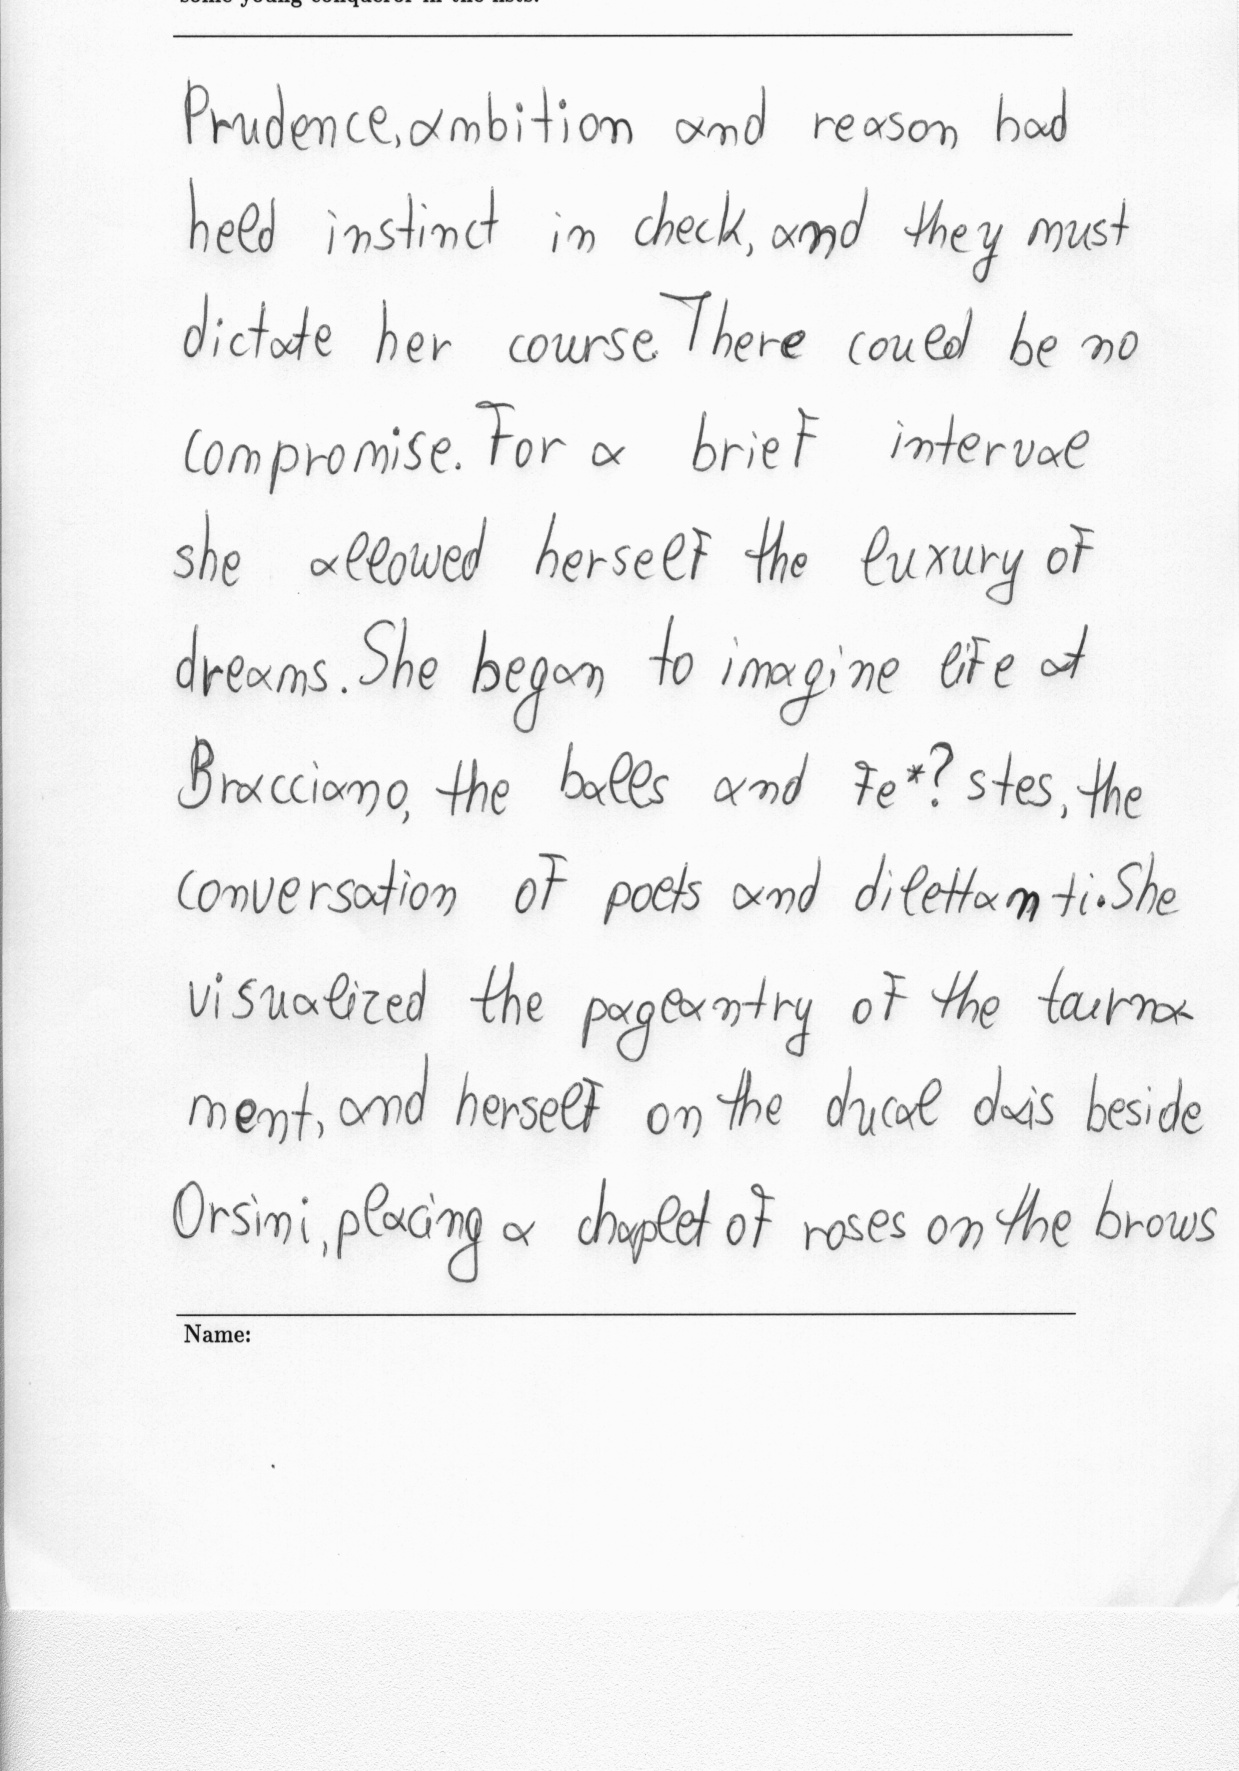 some young conqueror in the lists.
Prudence, ambition and reason had
held instinct in check, and they must
dictate her course. There could be no
compromise. For a brief interval
she allowed herself the luxury of
dreams. She began to imagine life at
Bracciano, the balls and fe*? stes, the
conversation of poets and dilettanti. She
visualized the pageantry of the tourna
ment, and herself on the ducal dais beside
Orsini, placing a chaplet of roses on the brows
Name: